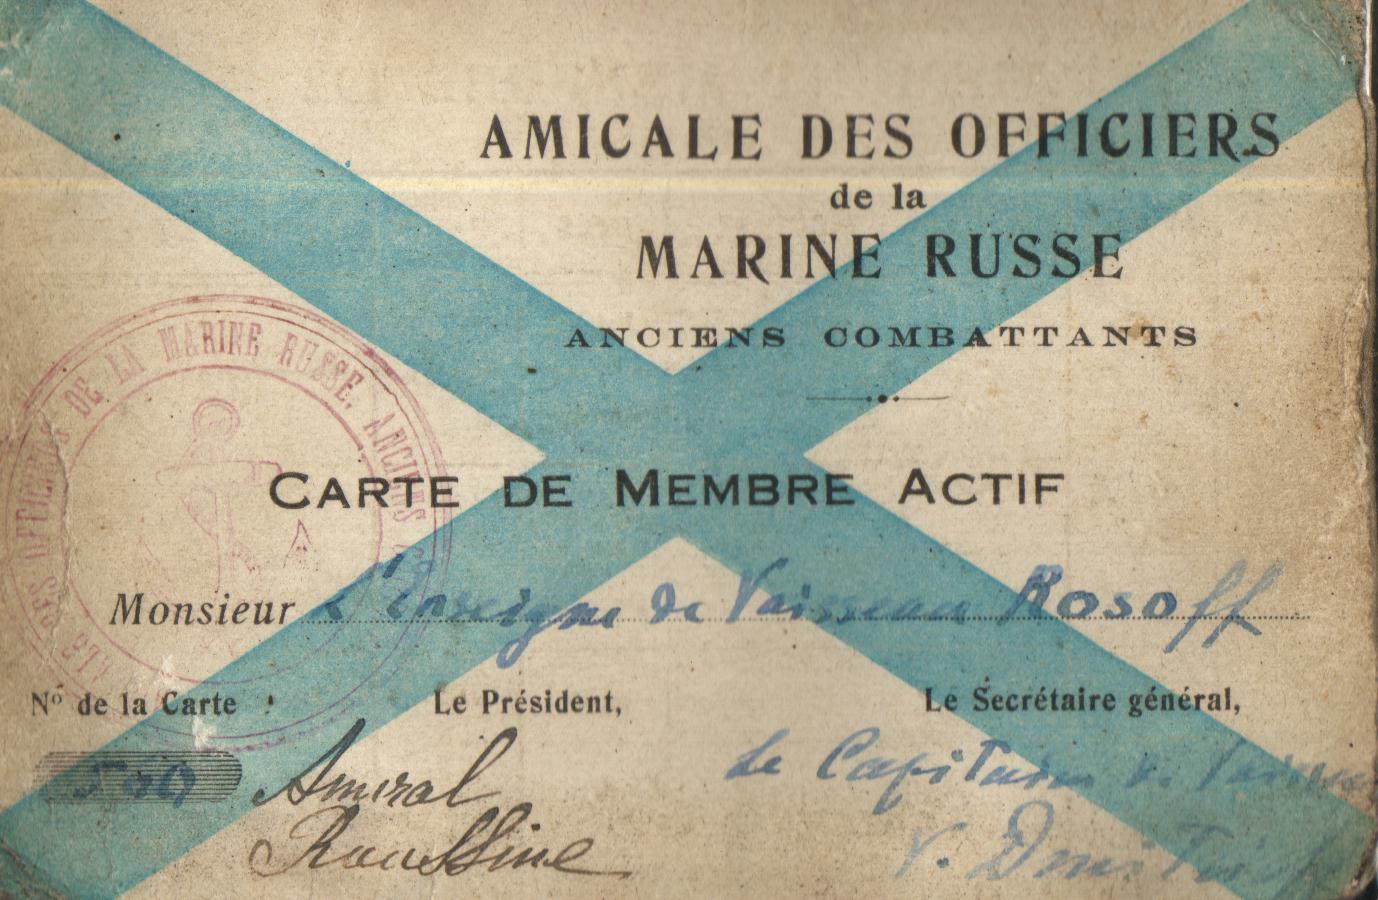 AMICALE DES OFFICIERS
de la
MARINE RUSSE
ANCIENS COMBATTANTS
DES OFFICIERS DE LA MARINE RUSSE. ANCIENS
CARTE DE MEMBRE ACTIF
Monsieur l'Enseigne de Vaisseau Rosoff
Nº de la Carte : Le Président, Le Secrétaire général,
Amiral
Le Capitaine
Roussine